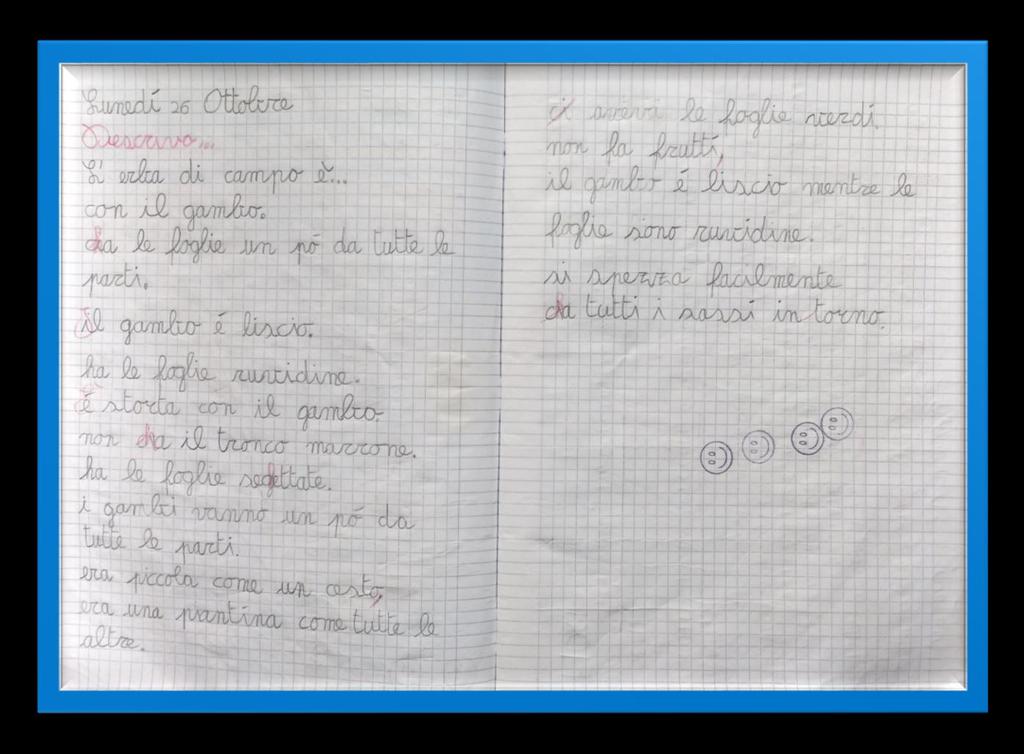 Lunedí 26 Ottobre
Descrivo...
L' erba di campo è...
con il gambo.
ha le foglie un pó da tutte le
parti.
il gambo é liscio.
ha le foglie ruvidine.
é storta con il gambo.
non ha il tronco marrone.
ha le foglie seghettate.
i gambi vanno un pó da
tutte le parti.
era piccola come un cesto,
era una piantina come tutte le
altre.
le foglie verdi
non fa frutti,
il gambo é liscio mentre le
foglie sono ruvidine.
si spezza facilmente
ha tutti i sassi in torno.